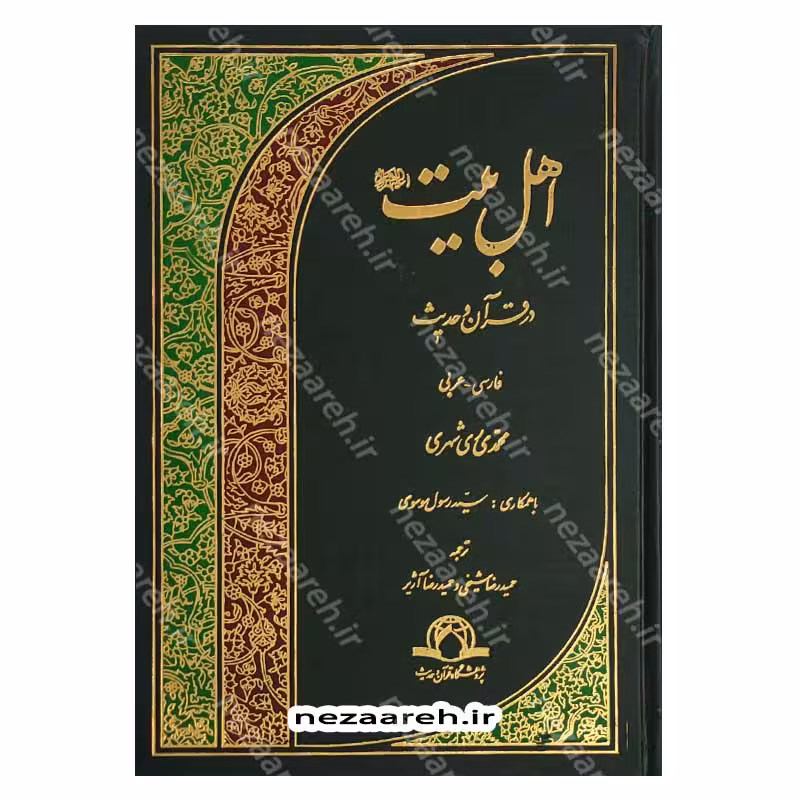 اهل بیت
در قرآن و حدیث
فارسی - عربی
محمّدی ری شهری
با همکاری : سیّد رسول موسوی
ترجمه
حمیدرضا شیخی و حمیدرضا آژیر
پژوهشگاه قرآن و حدیث
nezaareh.ir